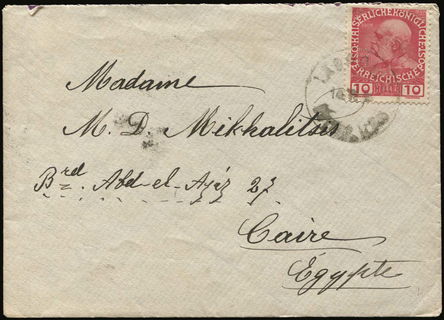 KAISERLICHE KÖNIGLICHE
ÖSTERREICHISCHE
10 HELLER 10
Madame
M. D. Mikhalitsis
Brd Abd-el-Aziz 27
Caire
Égypte